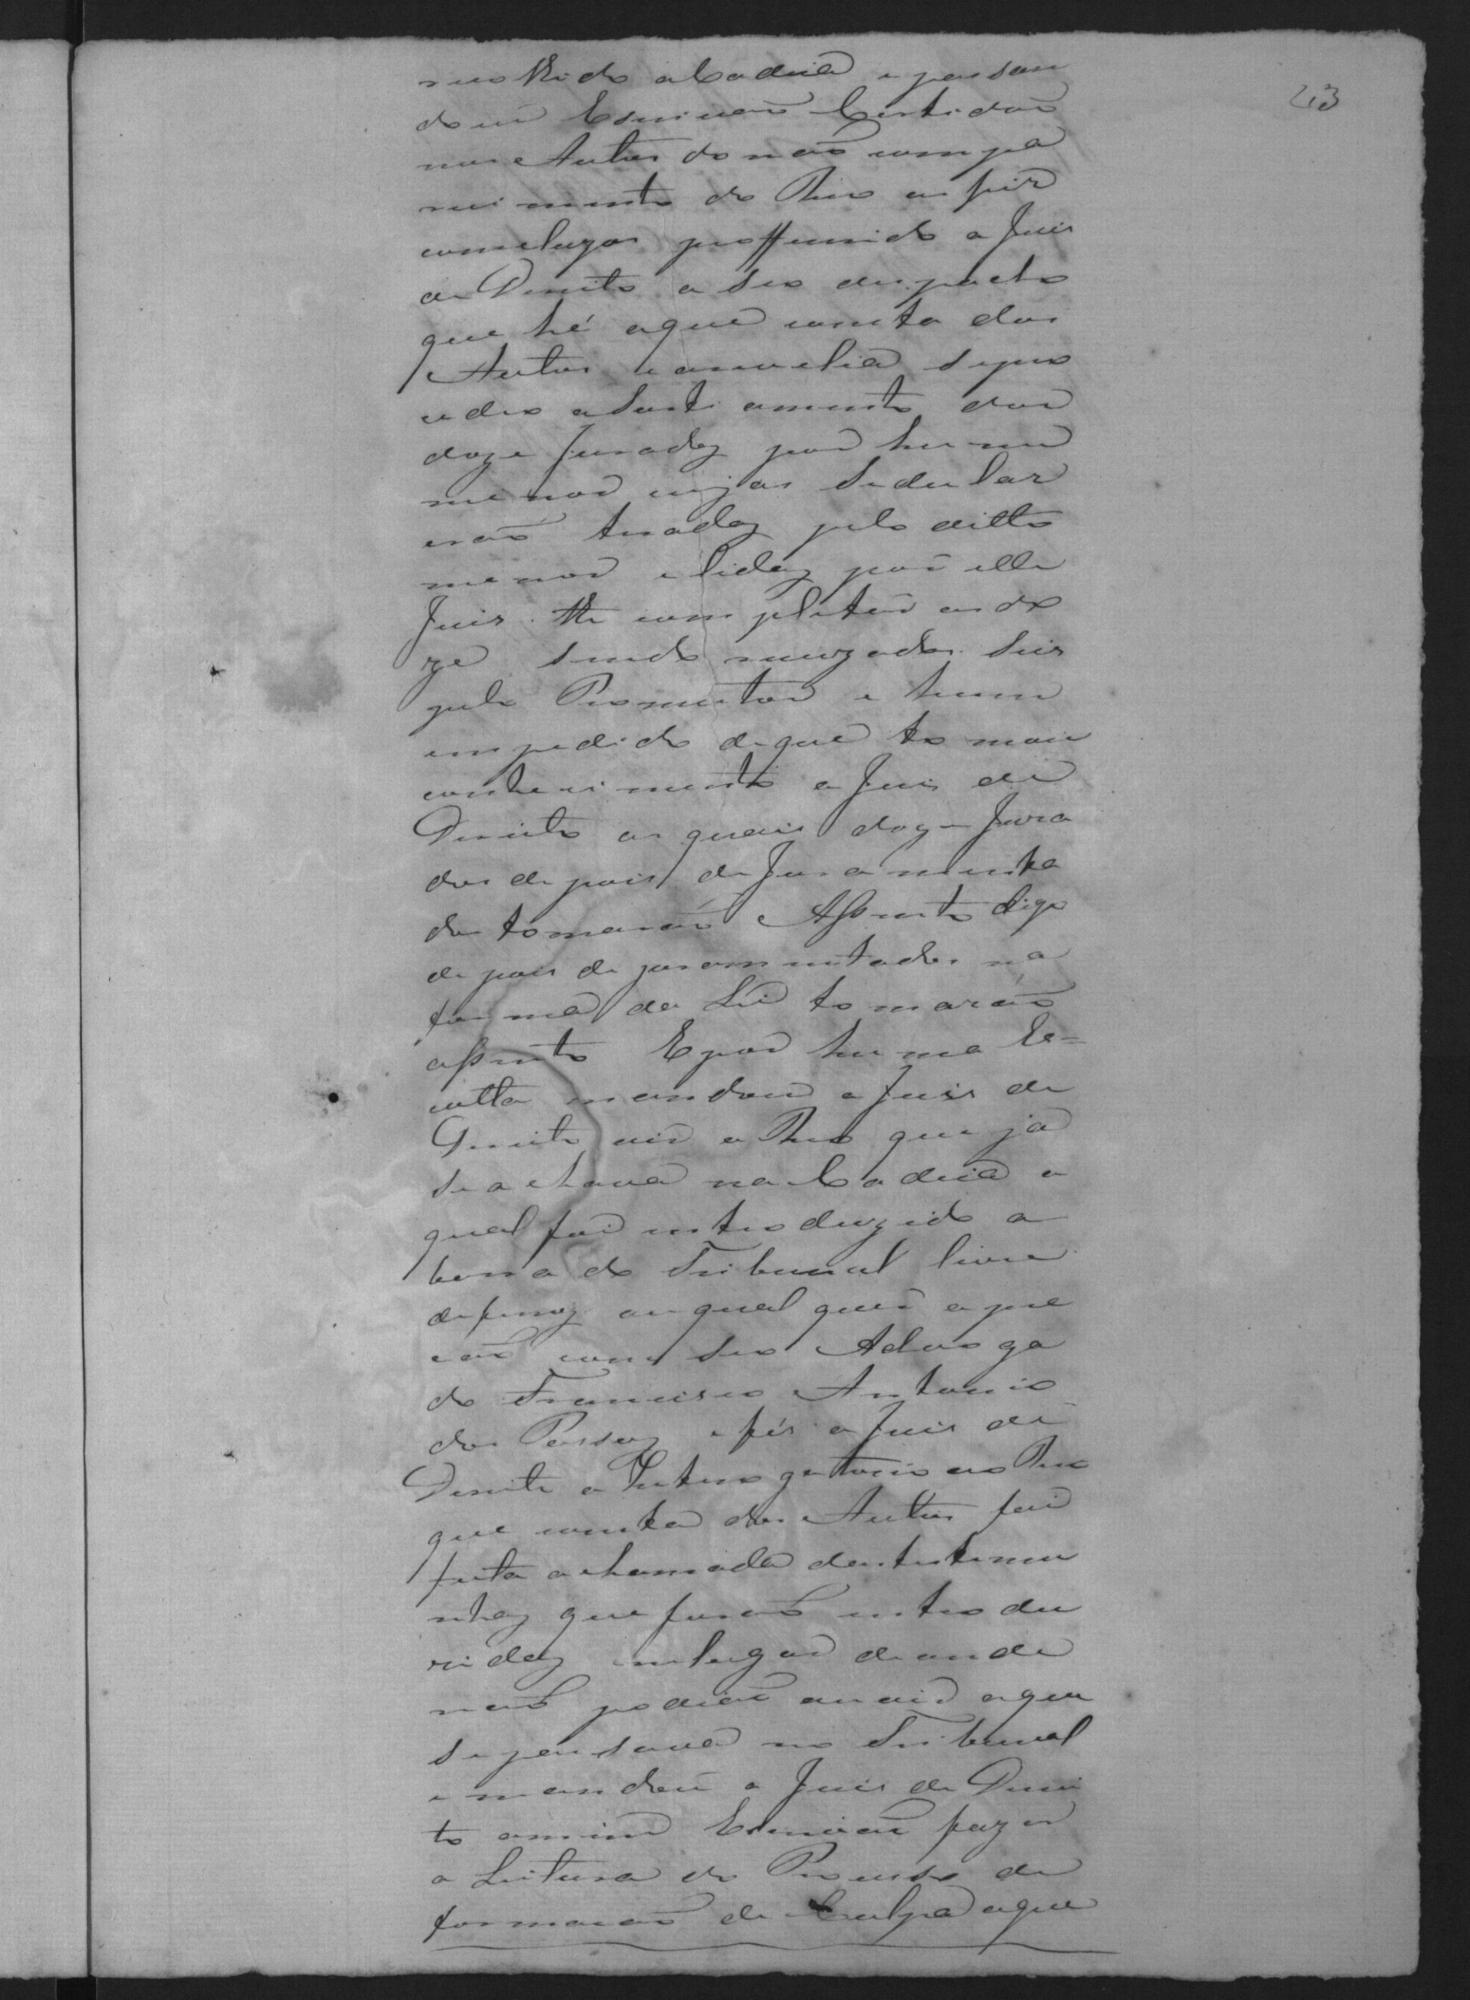 43
recolhido a Cadeia e passan
do eu Escrivaõ Certidaõ
nos Autos do naõ compa
recimento do Reo os fiz
conclusos proferindo o Juis
de Direito o seo despacho
que hé o que consta dos
Autos e em elia se pro
cedeo a sorteamento dos
doze Jurados por hum
menor cujas sedulas
eraõ tiradas pelo ditto
menor e lidas por elle
Juis. the completar os do
ze sendo recuzados seis
pelo Promotor e hum
impedido de que tomou
conhecimento o Juis de
Direito os quais doze Jura
dos depois de Juramenta
dos tomaraõ Assento digo
depois de juramentados na
forma da Lei tomaraõ
assento E por huma Es=
colta mandou o Juis de
Direito vir o Reo que já
se achava na Cadeia o
qual foi introduzido a
barra do Tribunal livre
de ferros ao qual
com seo Advoga
do Francisco Antonio
dos Passos e fes o Juis de
Direito o Interogatorio ao Reo
que consta dos Autos foi
feita a chamada das testemu
nhas que foraõ introdu
zidas em lugar de onde
naõ podiaõ ouvir o que
se passava no Tribunal
e mandou o Juis de Direi
to a mim Escrivaõ fazer
a Leitura do Processo de
formacaõ de Culpa o que